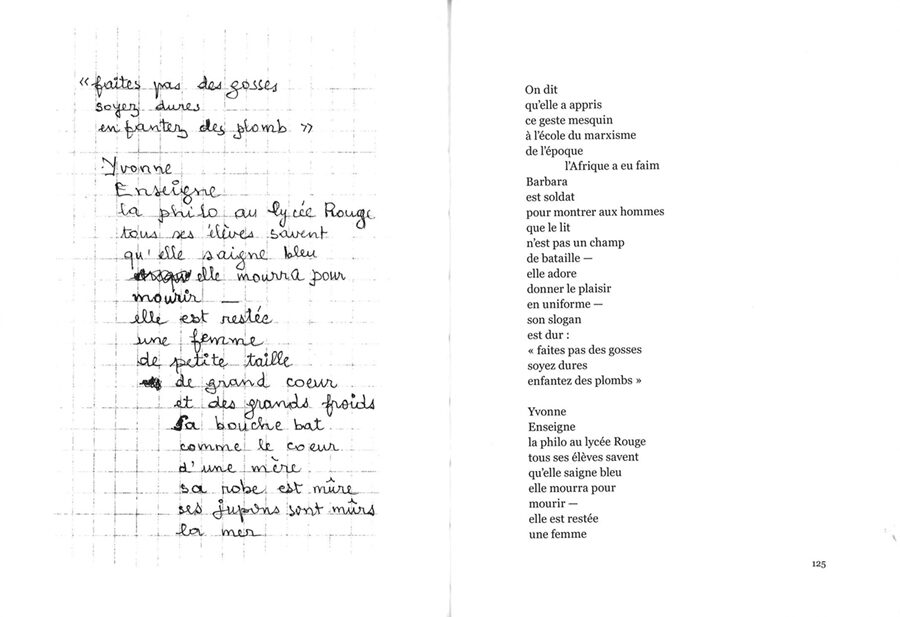 « faites pas des gosses
soyez dures
enfantez des plomb »
Yvonne
Enseigne
la philo au lycée Rouge
tous ses élèves savent
qu'elle saigne bleu
elle mourra pour
mourir —
elle est restée
une femme
de petite taille
de grand coeur
et des grands froids
sa bouche bat
comme le coeur
d'une mère
sa robe est mûre
ses jupons sont mûrs
la mer
On dit
qu'elle a appris
ce geste mesquin
à l'école du marxisme
de l'époque
l'Afrique a eu faim
Barbara
est soldat
pour montrer aux hommes
que le lit
n'est pas un champ
de bataille —
elle adore
donner le plaisir
en uniforme —
son slogan
est dur :
« faites pas des gosses
soyez dures
enfantez des plombs »
Yvonne
Enseigne
la philo au lycée Rouge
tous ses élèves savent
qu'elle saigne bleu
elle mourra pour
mourir —
elle est restée
une femme
125